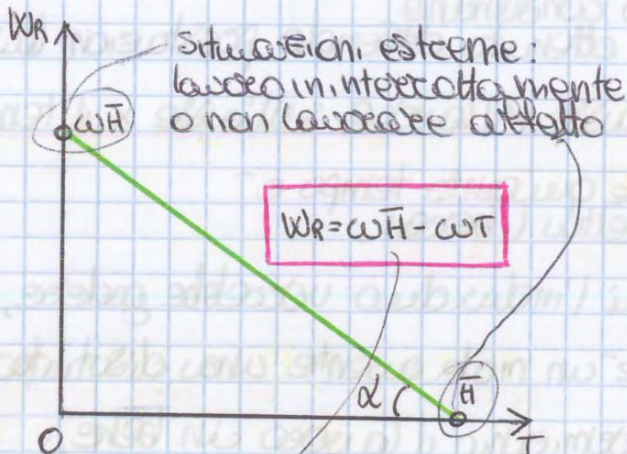 WR
situazioni esteme:
lavoro ininterrottamente
o non lavorare affatto
ωH̅
WR = ωH̅ - ωT
α
H̅
O
T